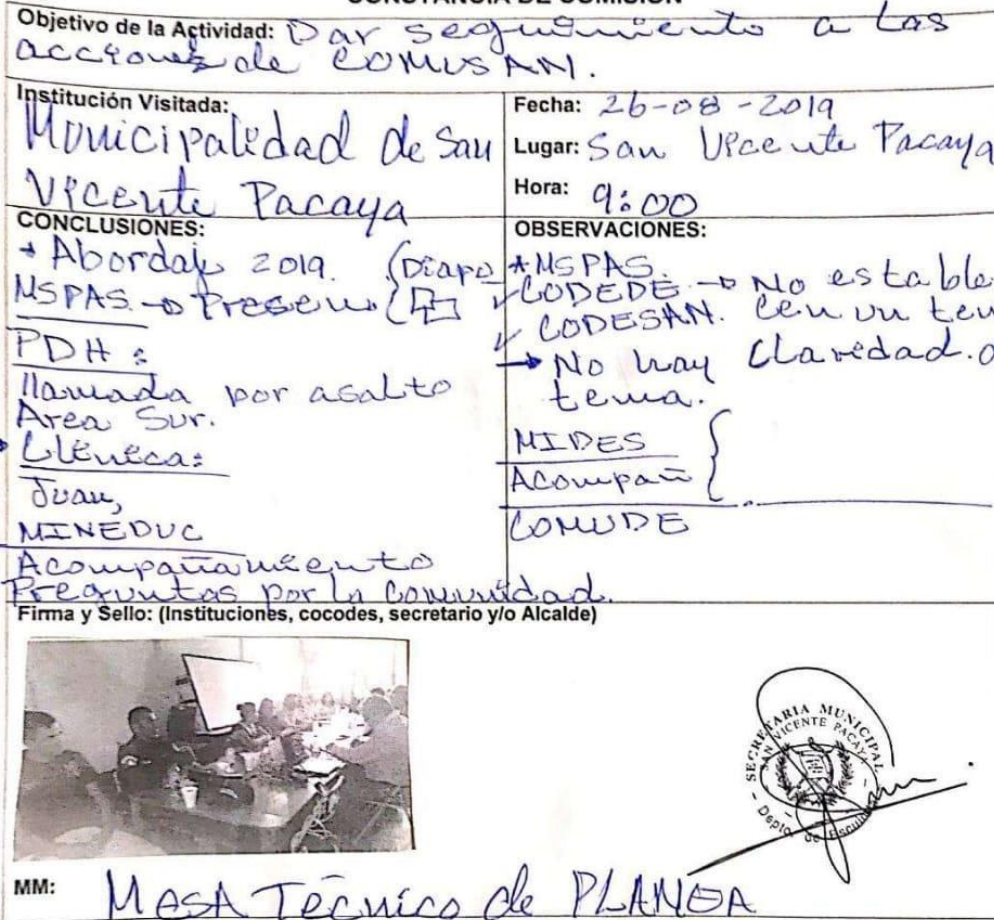 CONSTANCIA DE COMISIÓN
Objetivo de la Actividad: Dar seguimiento a las
acciones de COMUSAN.
Institución Visitada:
Municipalidad de San
Vicente Pacaya
Fecha: 26-08-2019
Lugar: San Vicente Pacaya
Hora: 9:00
CONCLUSIONES:
* Abordaje 2019. (Diapo
MSPAS. → Presen
PDH:
llamada por asalto
Area Sur.
Clínica:
Juan,
MINEDUC
Acompañamiento
Preguntas por la Comunidad.
OBSERVACIONES:
* MSPAS.
✓ CODEDE → No estable
✓ CODESAN. cen un tem
→ No hay Claridad.
tema.
MIDES
Acompañ
COMUDE
Firma y Sello: (Instituciones, cocodes, secretario y/o Alcalde)
SECRETARIA MUNICIPAL
SAN VICENTE PACAYA
MM: MESA Técnico de PLANEA